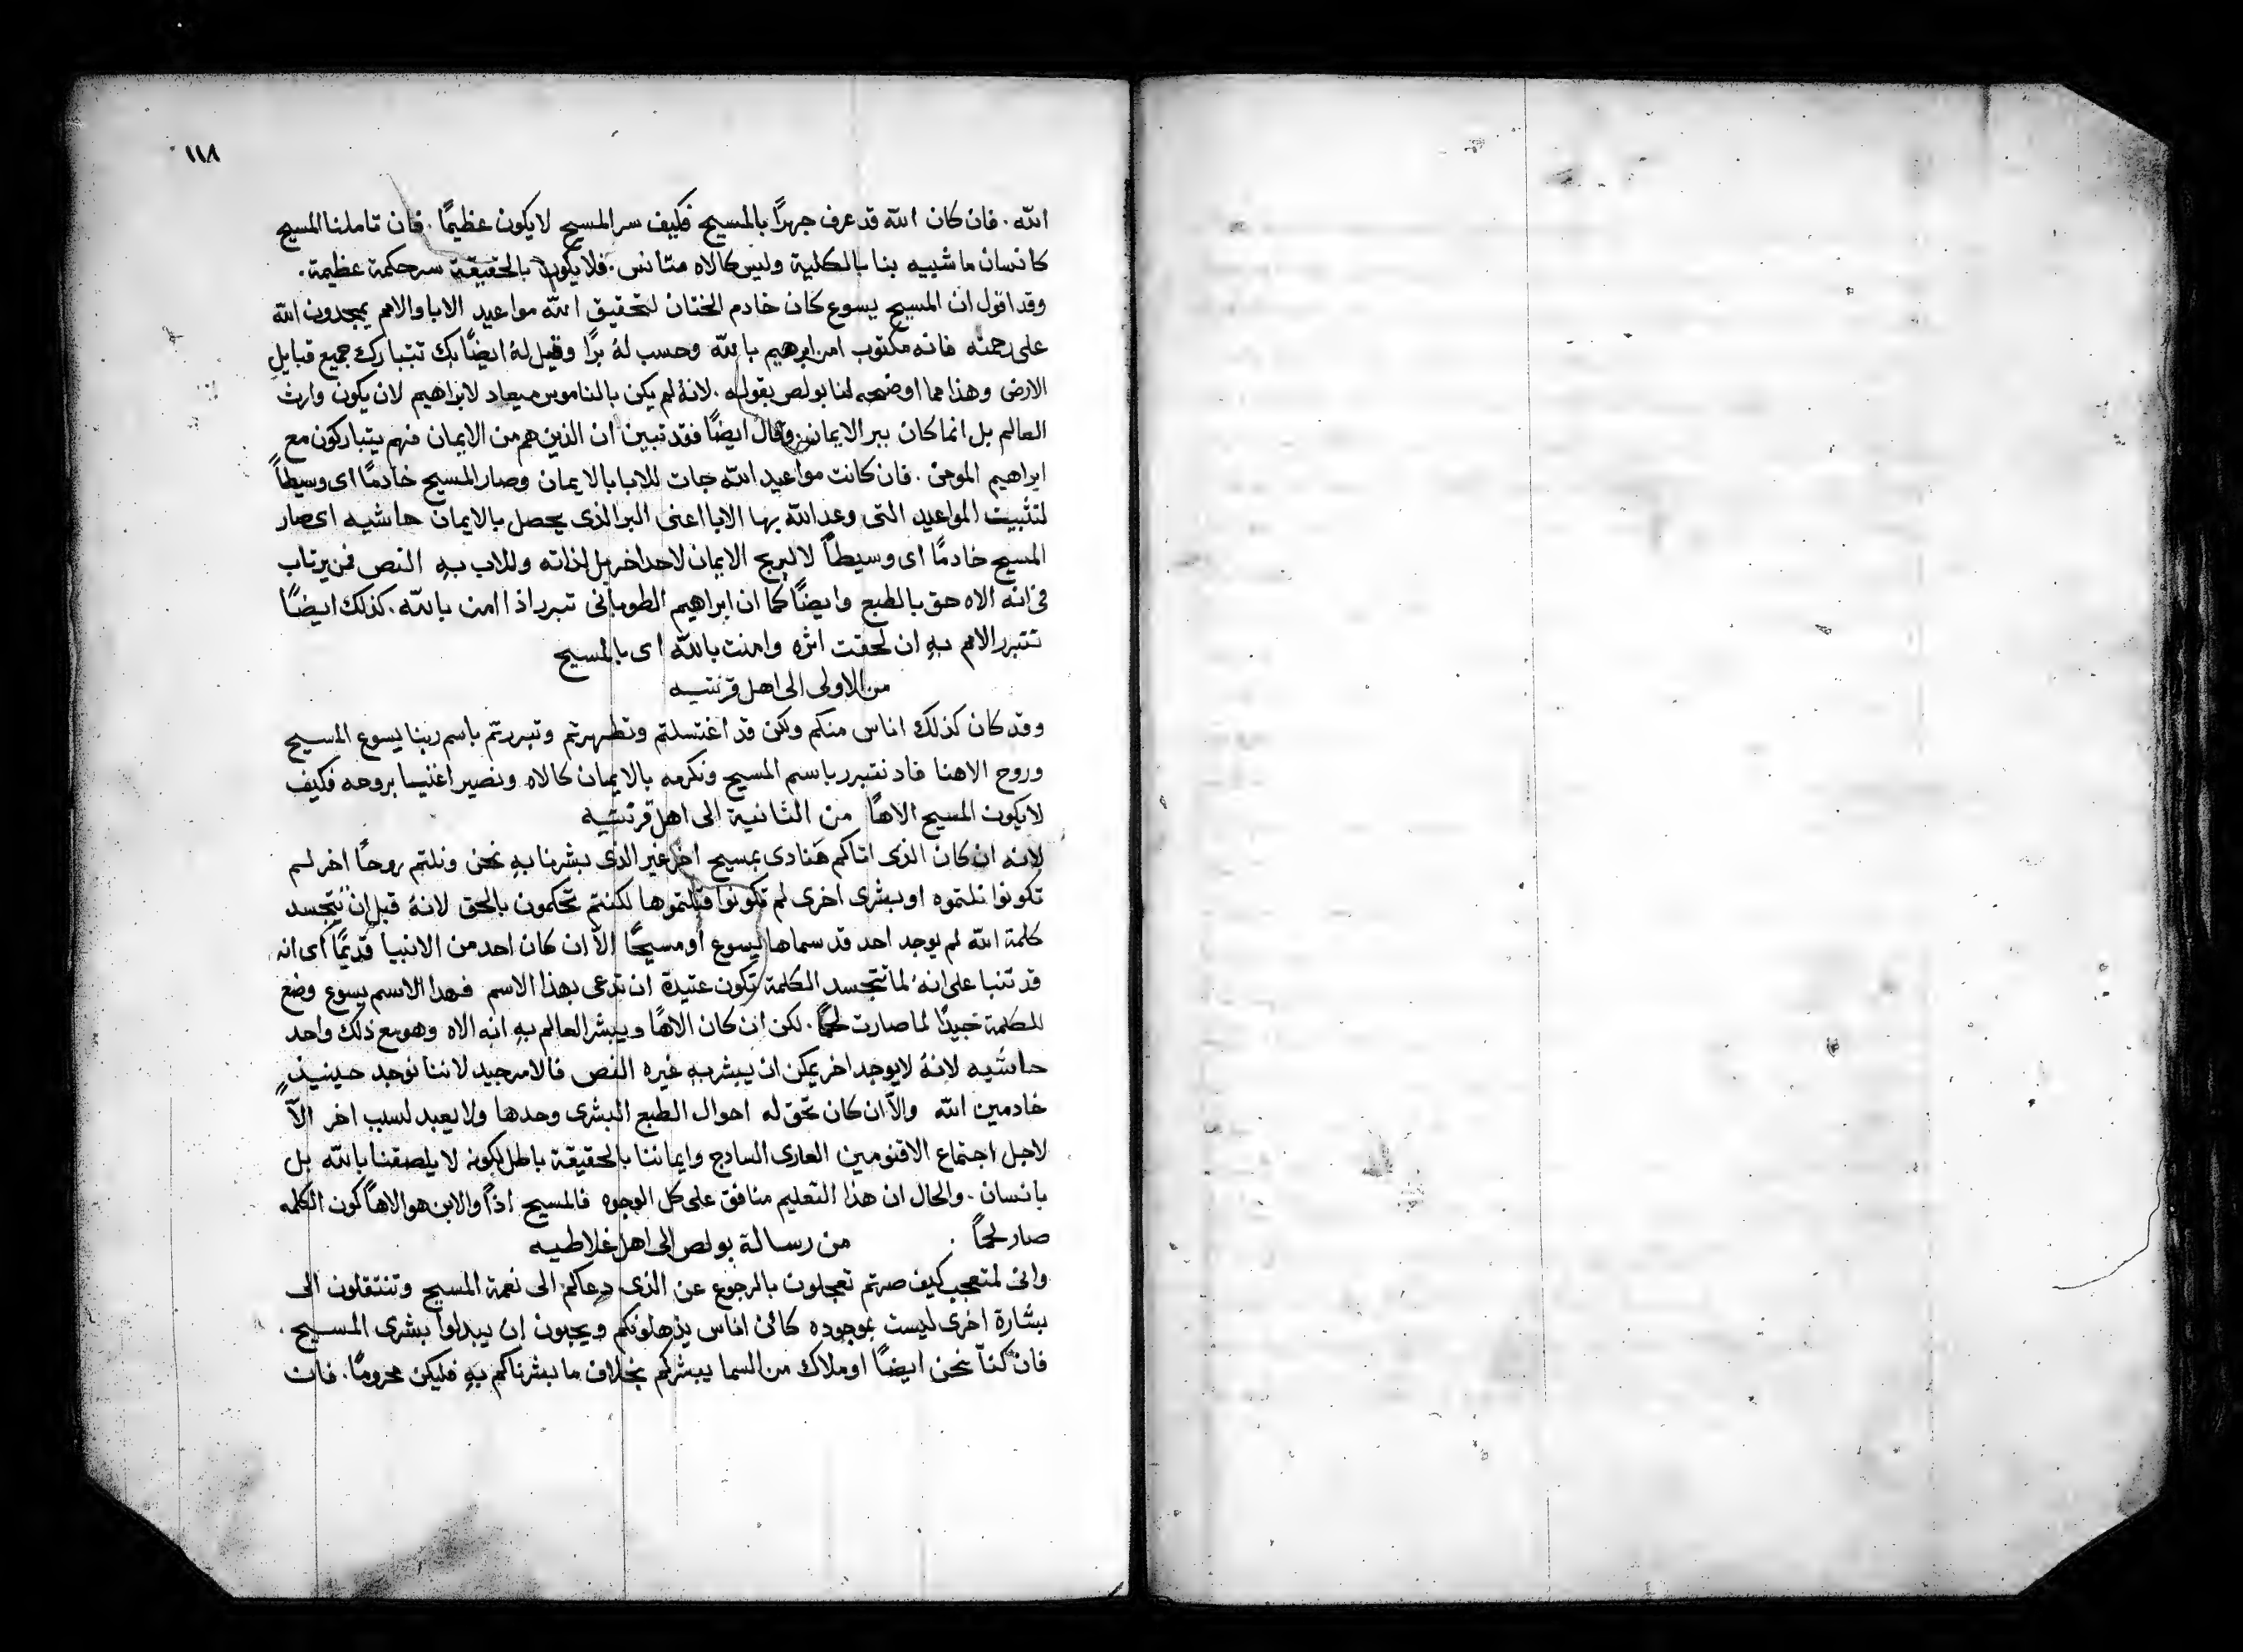 ١١٨
الله. فان كان الله قد عرف جهرًا بالمسيح فكيف سر المسيح لا يكون عظيمًا. فان تاملنا المسيح
كانسان ما شبيه بنا بالكلية وليس كالاه متانس. فلا يكون بالحقيقة سر حكمة عظيمة.
وقد اقول ان المسيح يسوع كان خادم الختان لتحقيق الله مواعيد الابا والامم يمجدون الله
على رحمته فانه مكتوب امن ابرهيم بالله وحسب لهُ برًا وقيل لهُ ايضًا بك تتبارك جميع قبايل
الارض وهذا مما اوضحه لنا بولص بقوله. لانهُ لم يكن بالناموس ميعاد لابراهيم لان يكون وارث
العالم بل انما كان ببر الايمان وقال ايضًا فقد تبين ان الذين هم من الايمان فهم يتباركون مع
ابراهيم المومن. فان كانت مواعيد الله جات للابا بالايمان وصار المسيح خادمًا اى وسيطاً
لتثبيت المواعيد التى وعد الله بها الابا اعنى البر الذى يحصل بالايمان حاشيه اى صار
المسيح خادمًا اى وسيطاً لا لبربح الايمان لاحد اخر بل لذاته وللاب بهِ النص فمن يرتاب
فى انه الاه حق بالطبع وايضًا كما ان ابراهيم الطوباني تبرر اذا امن بالله. كذلك ايضًا
تتبرر الامم بهِ ان لحقت اثره وامنت بالله اى بالمسيح
من الاولى الى اهل قرنتيه
وقد كان كذلك اناس منكم ولكن قد اغتسلتم وتطهرتم وتبررتم باسم ربنا يسوع المسيح
وروح الاهنا فاد نتبرر باسم المسيح ونكرمه بالايمان كالاه ونصير اغنيا بروحه فكيف
لا يكون المسيح الاهًا من الثانية الى اهل قرنتيه
لانه ان كان الذى اتاكم هنادى بمسيح اخر غير الذى بشرنا بهِ نحن ونلتم روحًا اخر لم
تكونوا نلتموه او بشرى اخرى لم تكونوا قبلتموها لكنتم تحكمون بالحق لانهُ قبل ان يتجسد
كلمة الله لم يوجد احد قد سماها يسوع او مسيحًا الاّ ان كان احد من الانبيا قديمًا اى انه
قد تنبا على انهُ لما تتجسد الكلمة تكون عتيدة ان تدعى بهذا الاسم فهذا الاسم يسوع وضع
للكلمة جيدًا لما صارت لحمًا. لكن ان كان الاهًا ويبشر العالم بهِ انه الاه وهو مع ذلك واحد
حاشيه لانهُ لا يوجد اخر يمكن ان يبشر بهِ غيره النص فالامر جيد لاننا نوجد حينيذٍ
خادمين الله والاّ ان كان تحق له احوال الطبع البشرى وحدها ولا يعبد لسبب اخر الاّ
لاجل اجتماع الاقنومين العارى السادج وايماننا بالحقيقة باطل لكونه لا يلصقنا بالله بل
بانسان. والحال ان هذا التعليم منافق على كل الوجوه فالمسيح اذاً والابن هو الاهًا كون الكلمه
صار لحمًا. من رسالة بولص الى اهل غلاطيه
وانى لمتعجب كيف صرتم تعجلون بالرجوع عن الذى دعاكم الى نعمة المسيح وتنتقلون الى
بشارة اخرى ليست بموجوده كائن اناس يذهلونكم ويحبون ان يبدلوا بشرى المسيح.
فان كنّا نحن ايضًا او ملاك من السما يبشركم بخلاف ما بشرناكم بهِ فليكن محرومًا. فان